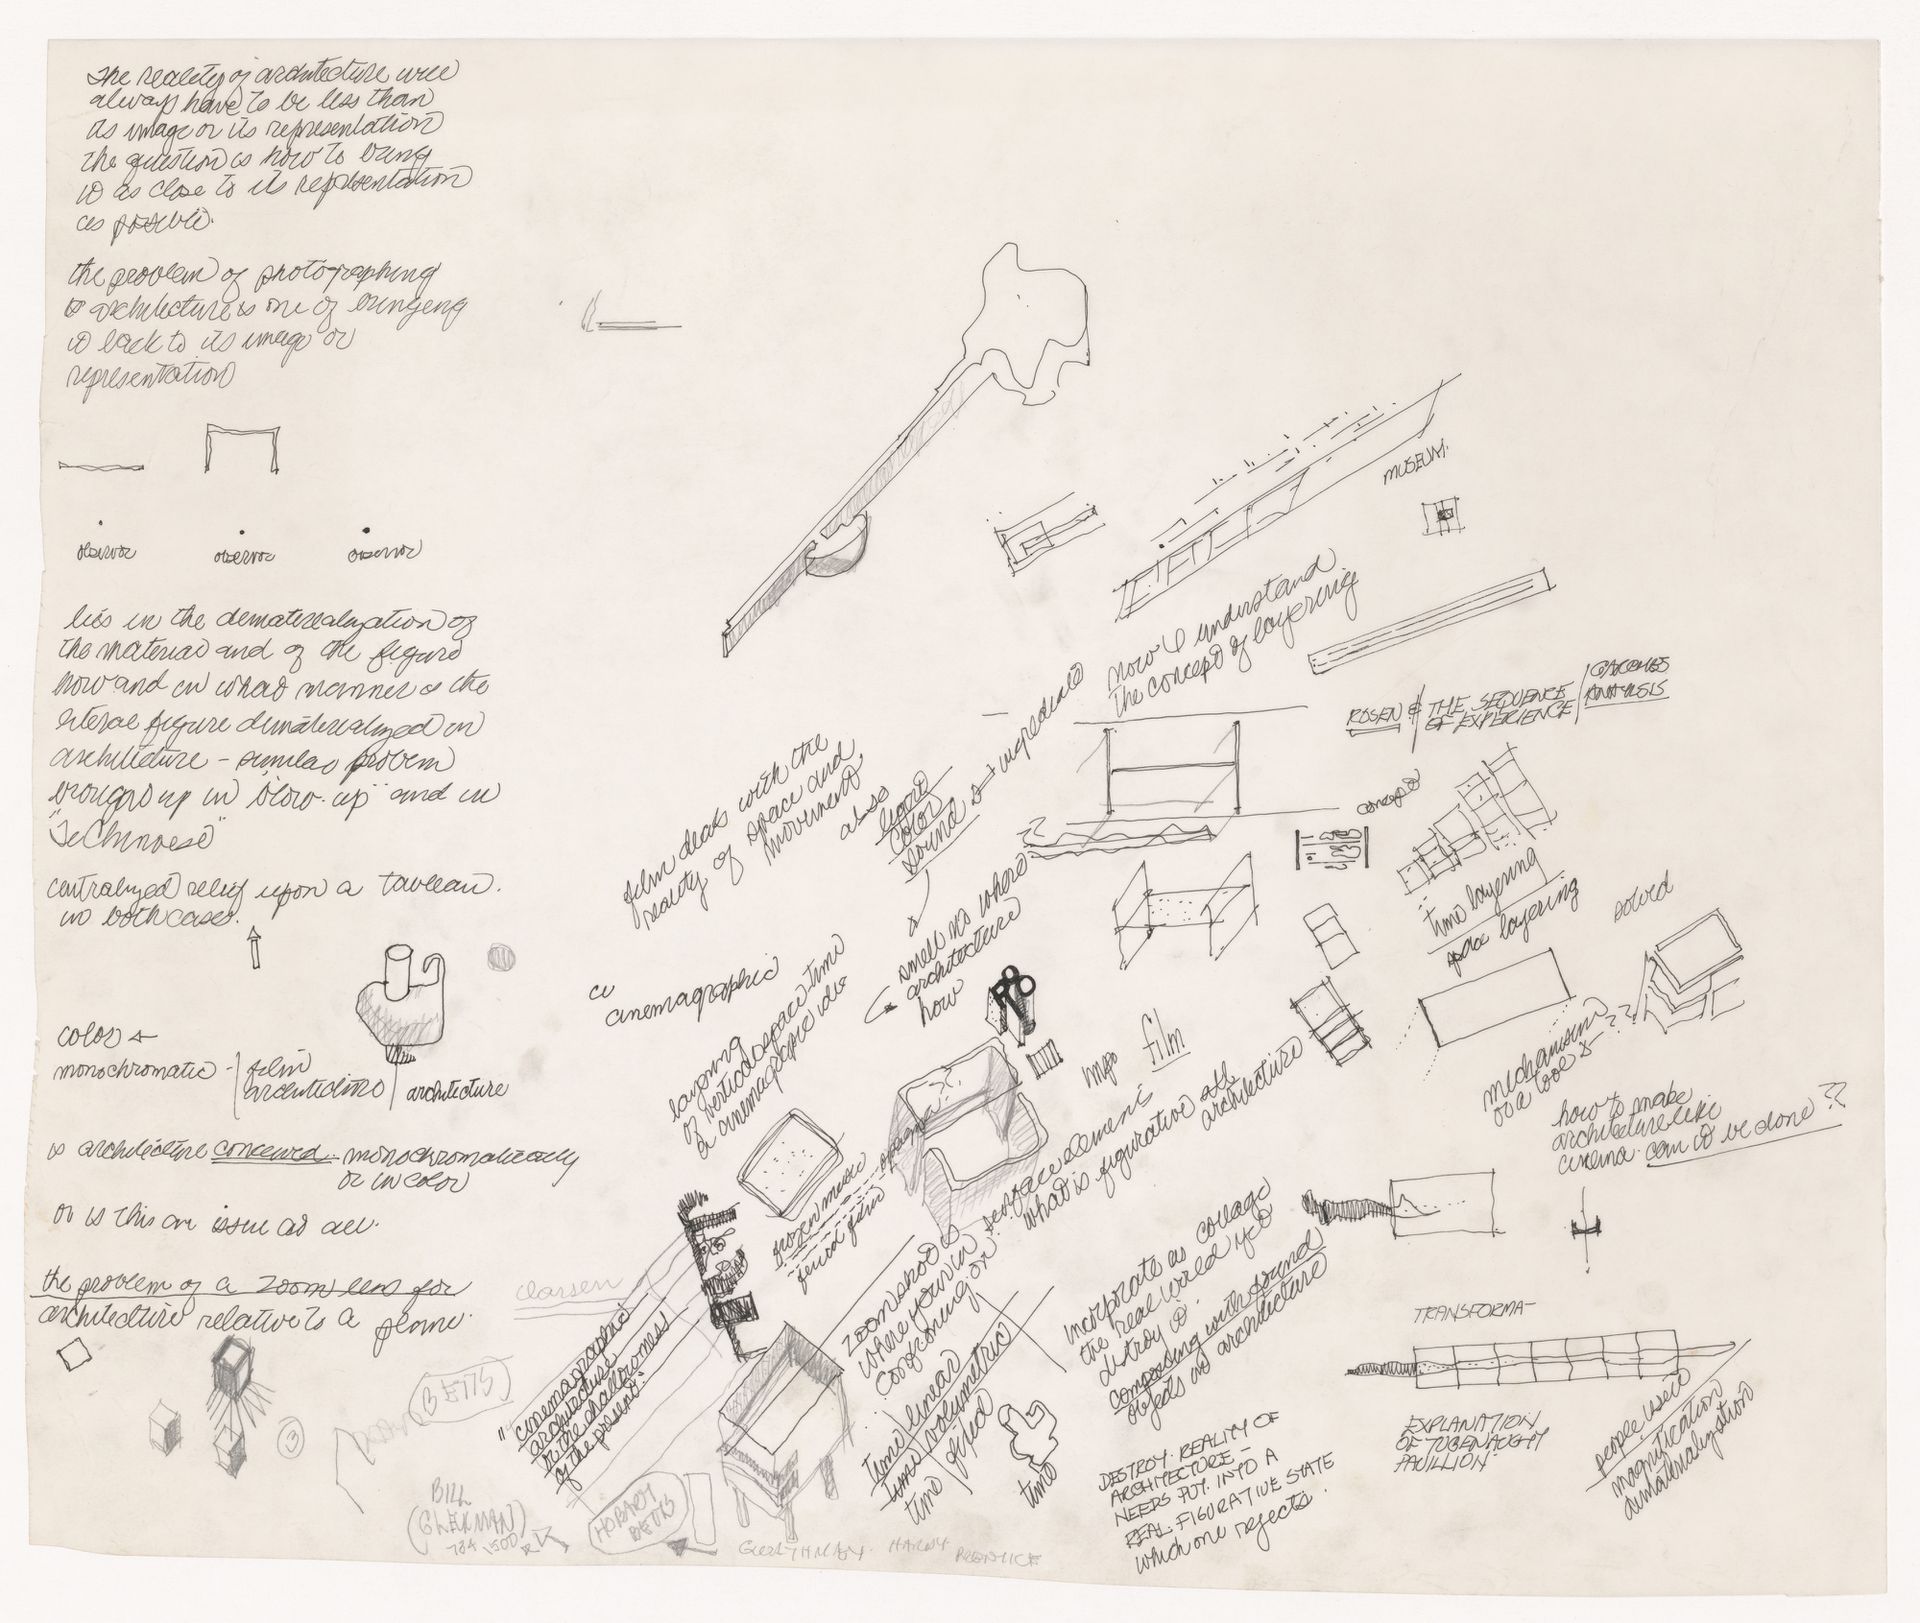 The reality of architecture will
always have to be less than
its image or its representation
The question is how to bring
it as close to its representation
as possible.
the problem of photographing
architecture is one of bringing
it back to its image or
representation
observor
observor
observor
lies in the dematerialization of
the material and of the figure
how and in what manner is the
literal figure dematerialized in
architecture - similar problem
brought up in "blow-up" and in
centralized relief upon a tableau.
in both cases.
color
monochromatic - film
architecture
architecture
is architecture conceived monochromatically
or in color
or is this an issue at all.
the problem of a zoom lens for
architecture relative to a plane.
3
BETTS
BILL
784 1500
HOBART
BETTS
HARDY
Clarsen
"cinemagraphic
architecture
or the shallowness
of the present."
film deals with the
reality of space and
movement
also
color
sound
ingrediants
smell
architecture
how
cinemagraphic
layering
of vertical space time
a cinemagraphic idea
frozen music
zoom shot is
where you're in
time linear
time volumetric
time fixed
time
film
surface elements
what is figurative all
architecture
MUSEUM.
now I understand
the concept of layering
ROSEN & THE SEQUENCE
OF EXPERIENCE
ANALYSIS
concept
time layering
space layering
solid
mechanism
or a tool
??
how to make
architecture like
cinema. can it be done ??
incorporate as collage
the real world yet
destroy it.
composing with sound
objects in architecture
DESTROY. REALITY OF
ARCHITECTURE -
NEEDS PUT. INTO A
REAL. FIGURATIVE STATE
which one rejects.
TRANSFORMA-
EXPLANATION
OF TUGENAUGHT
PAVILLION.
people used
magnification
dematerialization